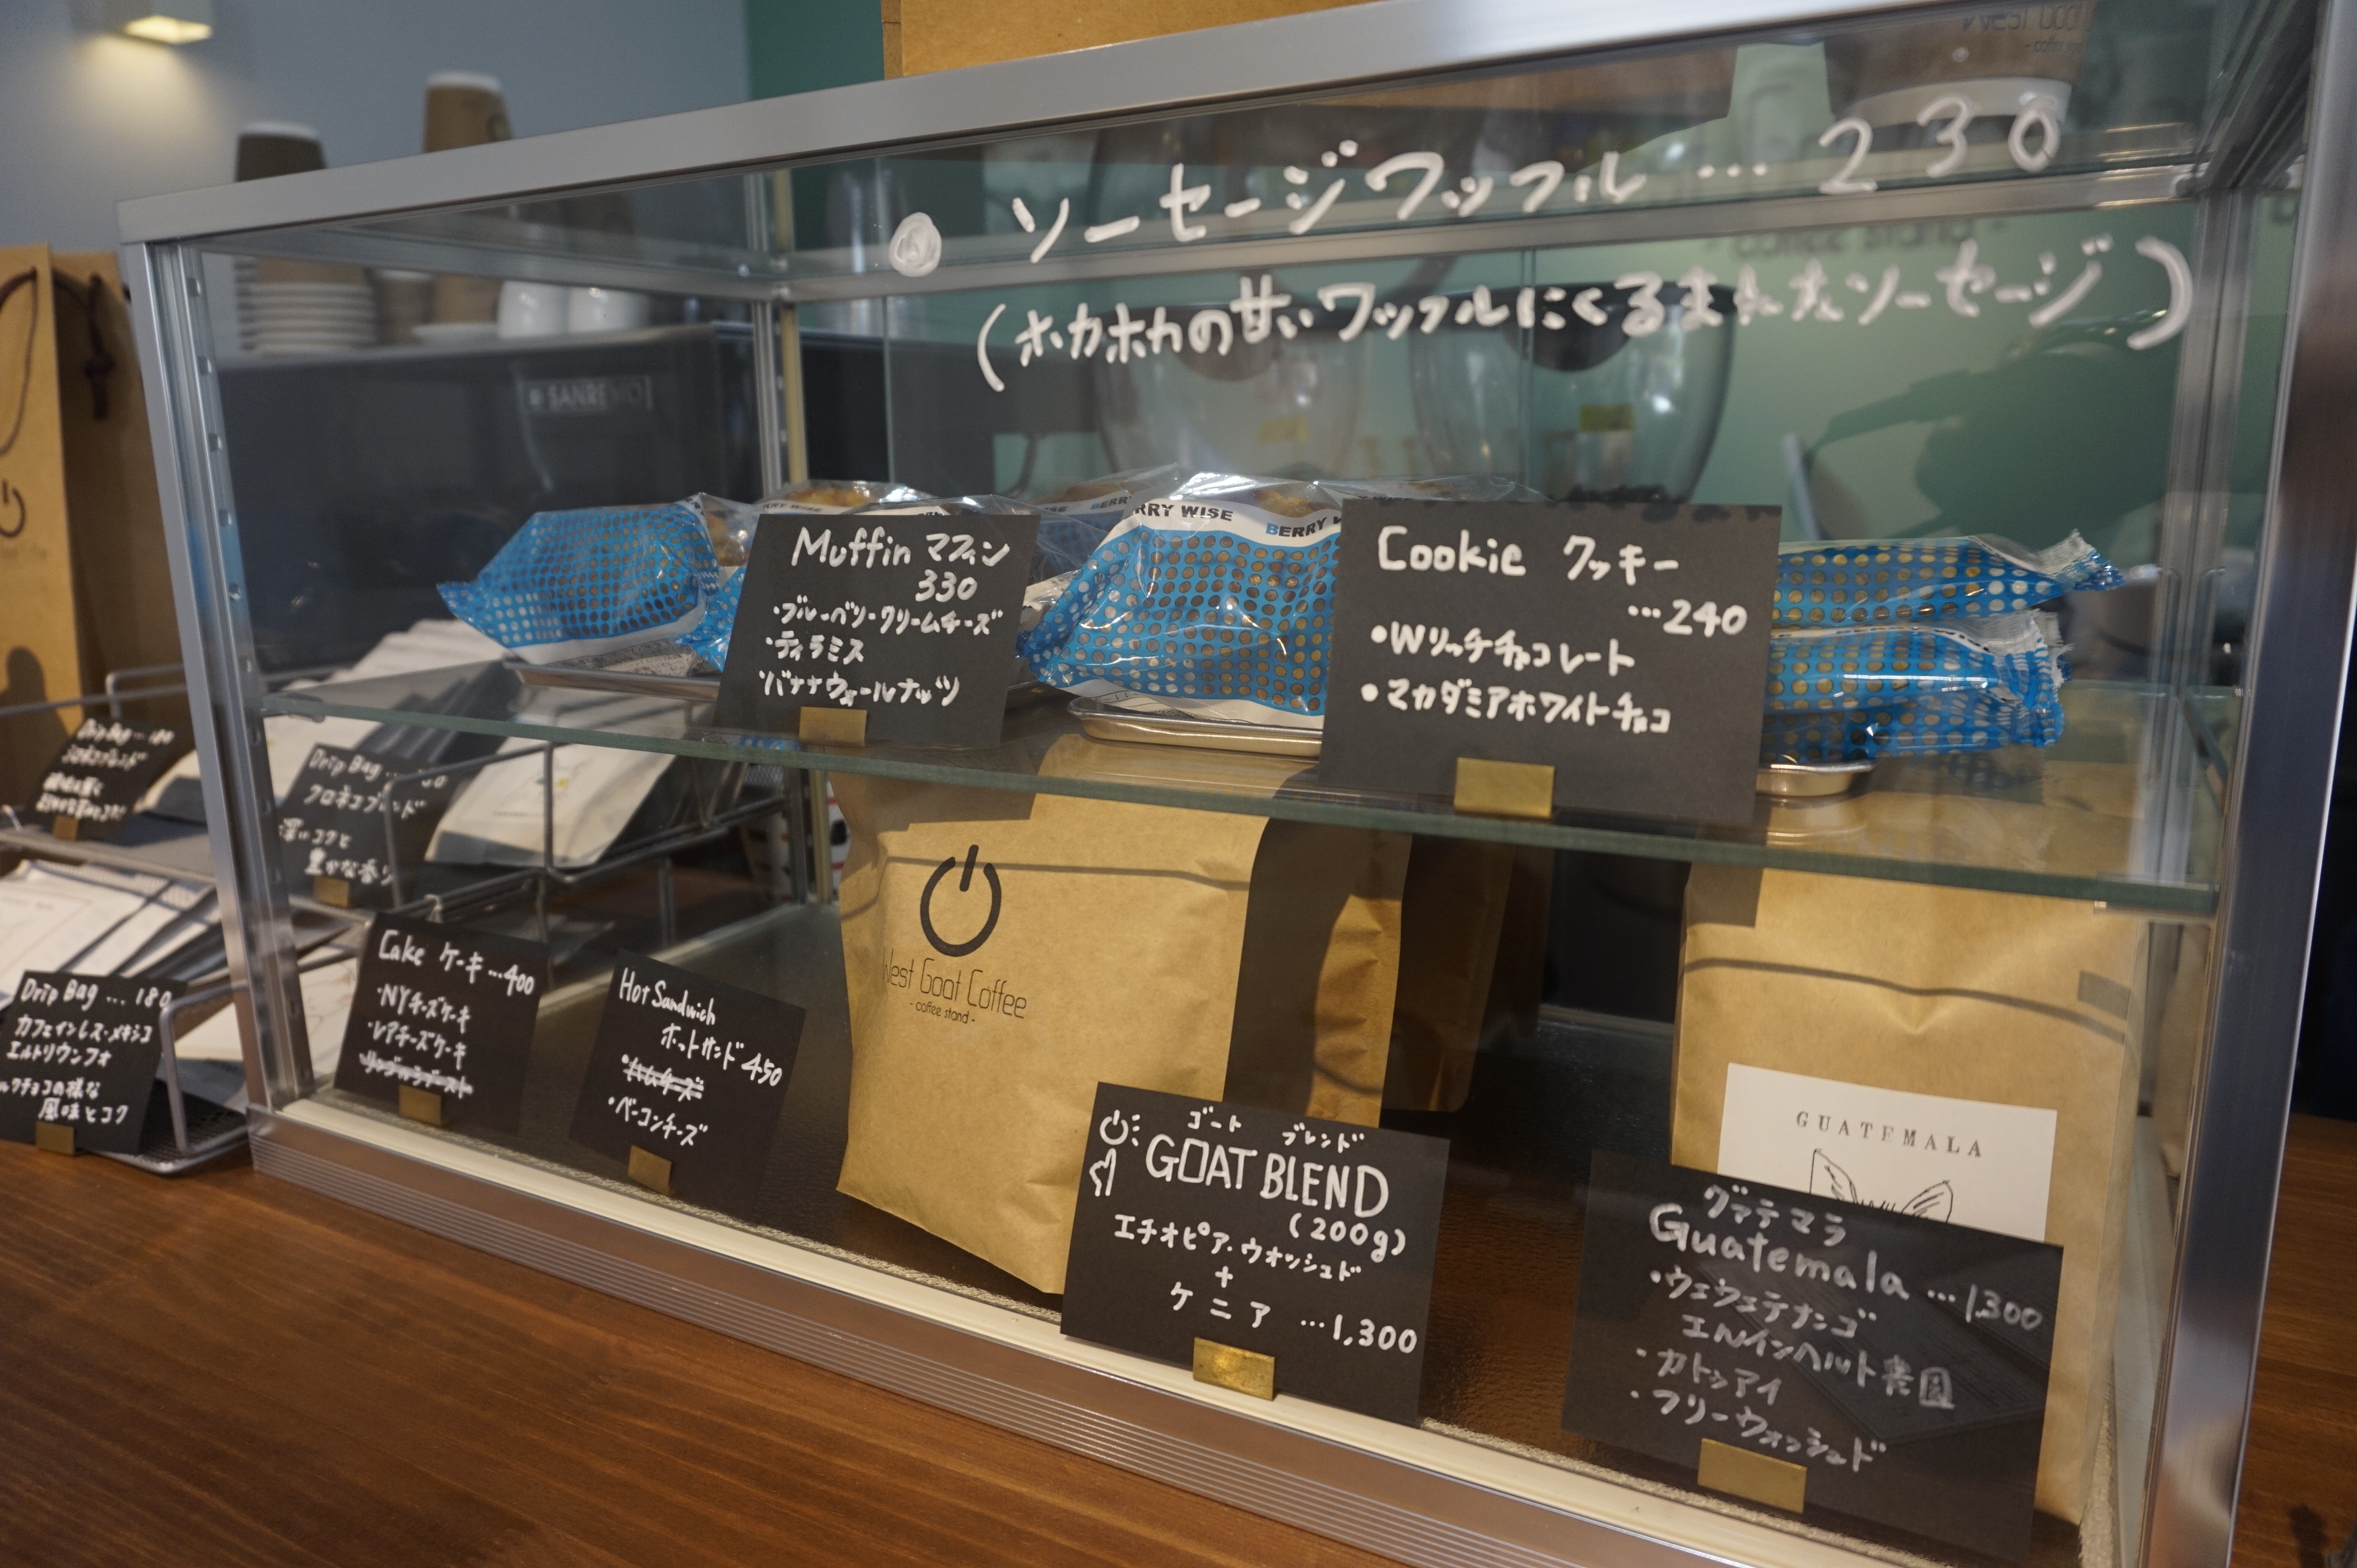 ソーセージワッフル…230
(ホカホカの甘いワッフルにくるまれたソーセージ)
SANREMO
RRY WISE
BERRY
Muffin マフィン
330
・ブルーベリークリームチーズ
・ティラミス
・バナナウォールナッツ
Cookie クッキー
…240
•Wリッチチョコレート
•マカダミアホワイトチョコ
Drip Bag
クロネコブレンド
深いコクと
豊かな香り
Drip Bag … 180
カフェインレス・メキシコ
エルトリウンフォ
ルクチョコの様な
風味とコク
Cake ケーキ…400
・NYチーズケーキ
・レアチーズケーキ
Hot Sandwich
ホットサンド 450
・ハムチーズ
・ベーコンチーズ
West Goat Coffee
- coffee stand -
ゴート ブレンド
GOAT BLEND
(200g)
エチオピア・ウォッシュド
+
ケニア …1,300
GUATEMALA
グァテマラ
Guatemala …1,300
・ウェウェテナンゴ
エルインヘルト農園
・カトゥアイ
・フリーウォッシュド